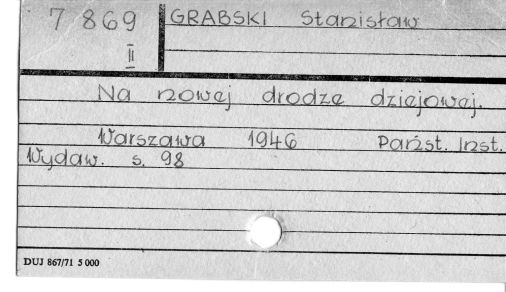 7 869
II
GRABSKI Stanisław
Na nowej drodze dziejowej.
Warszawa 1946 Państ. Inst.
Wydaw. s. 98
DUJ 867/71 5 000